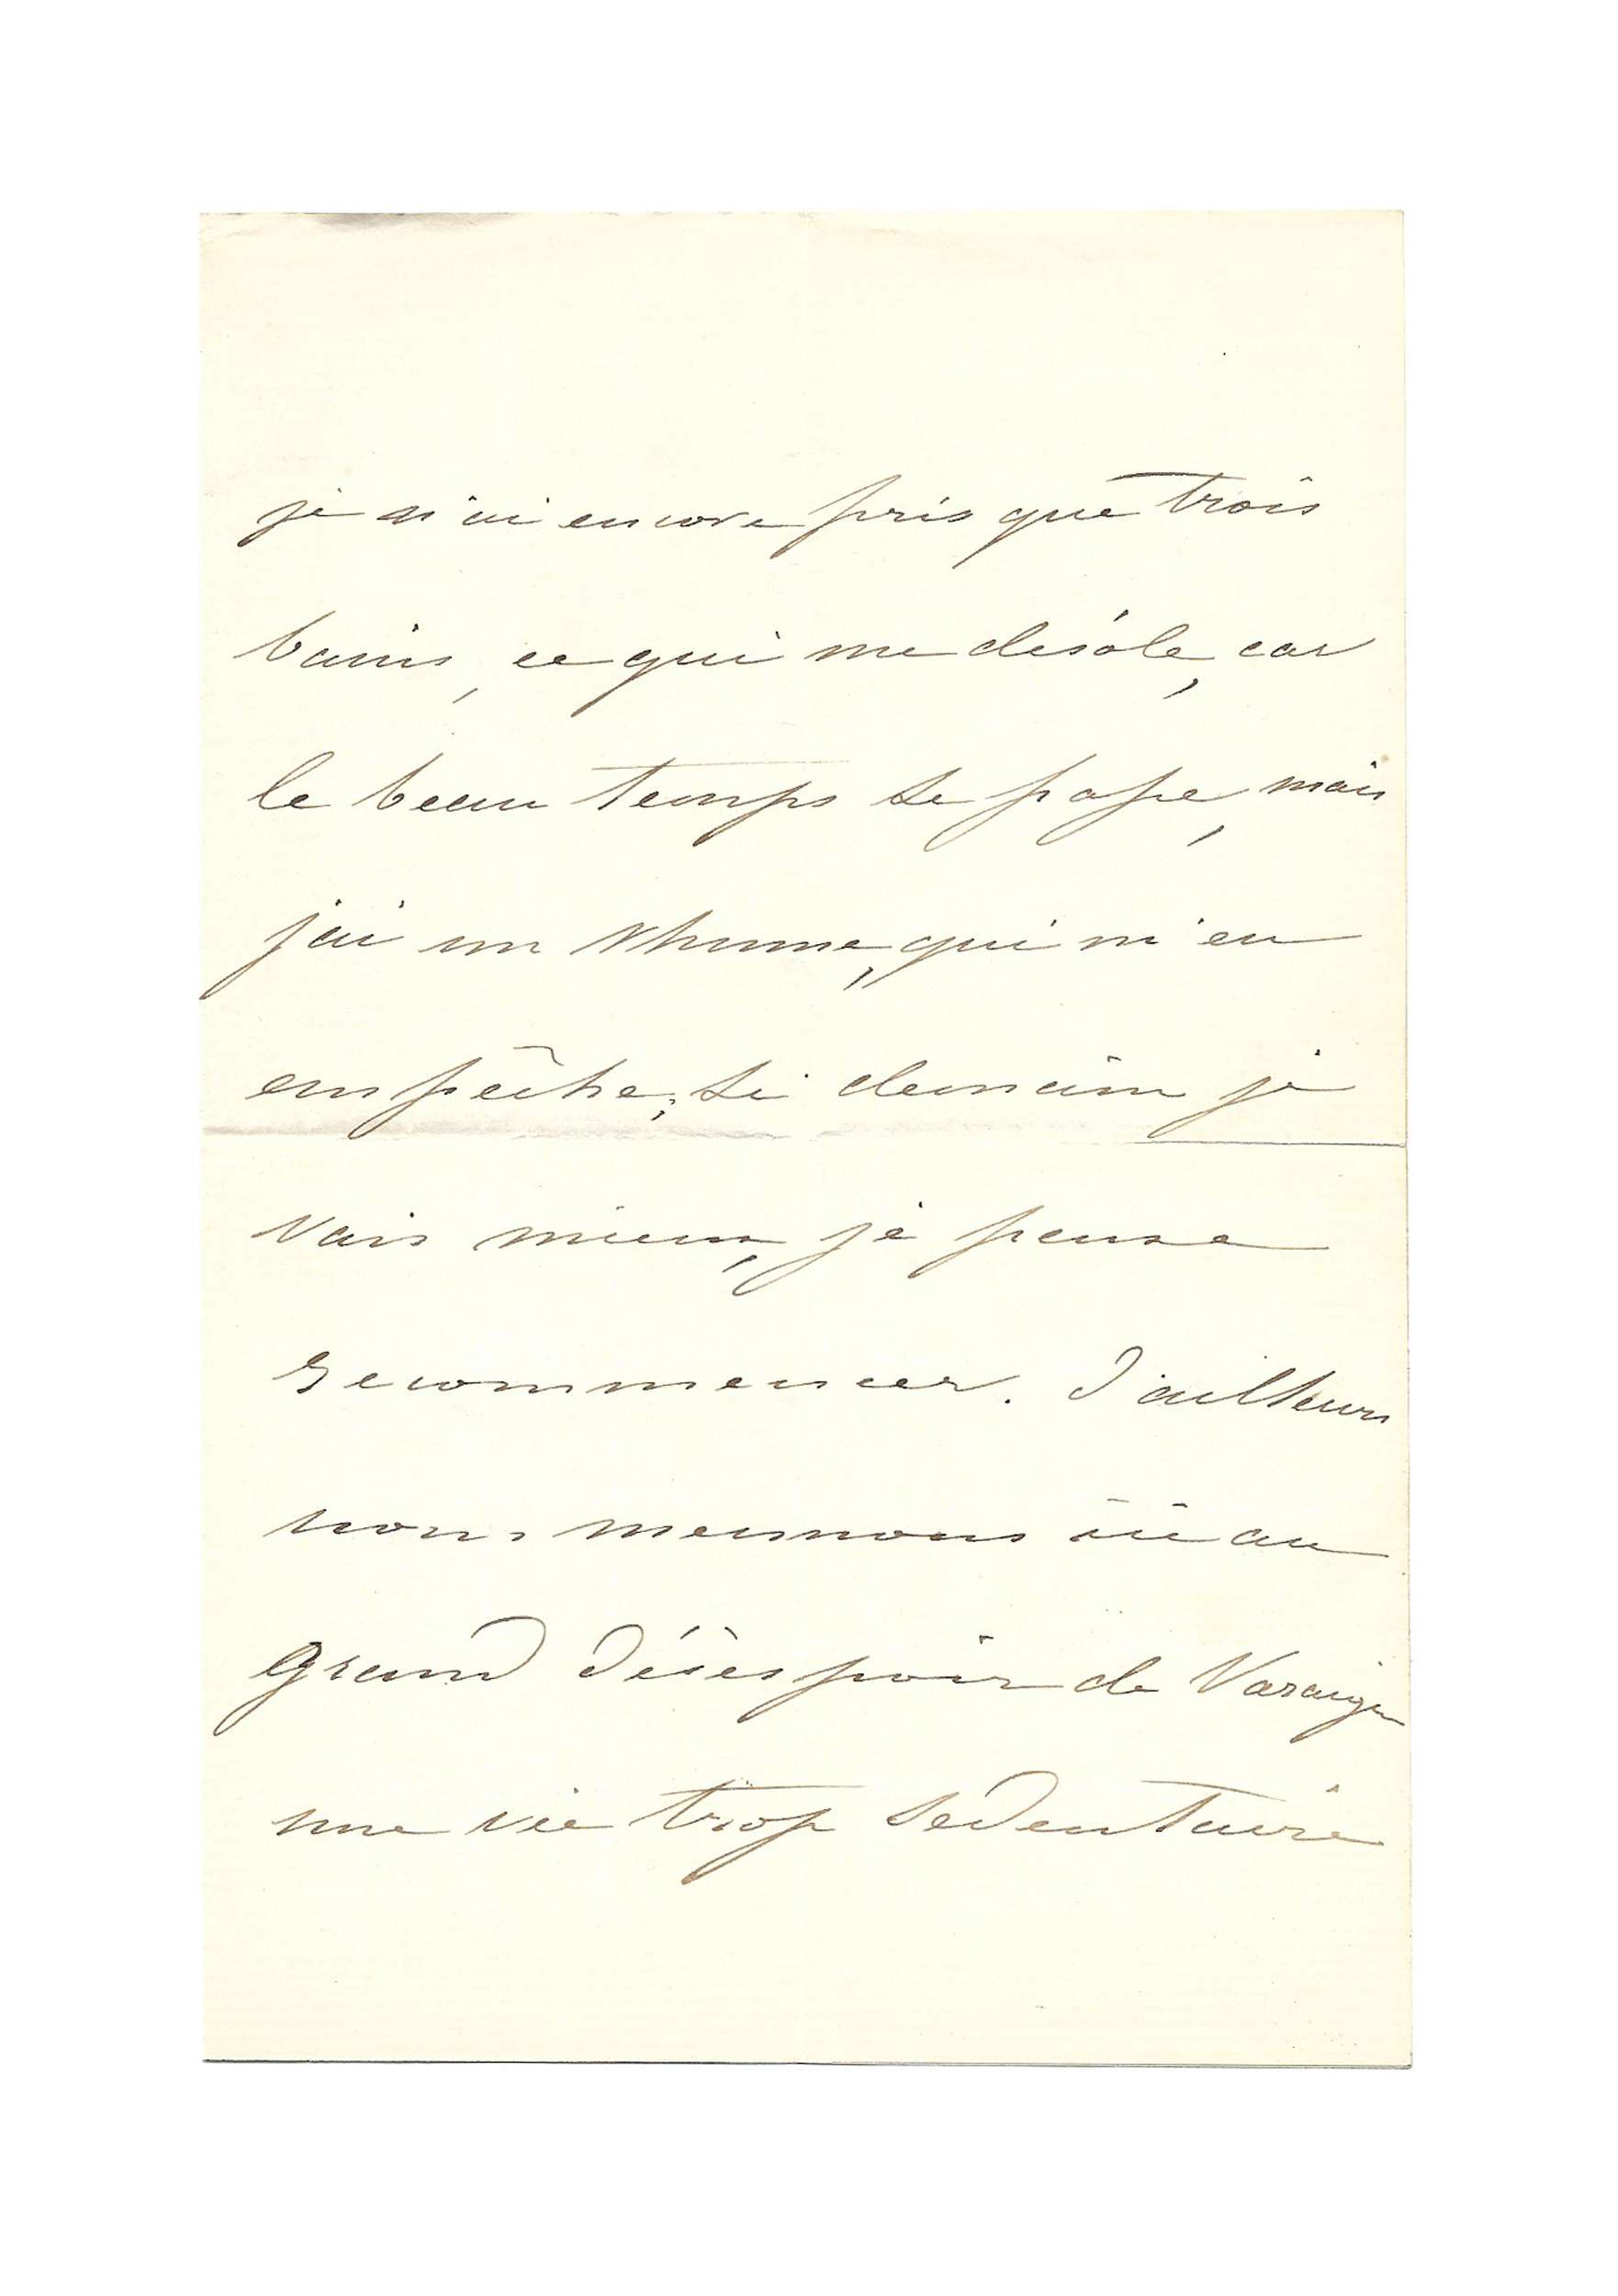 je n'ai encore pris que trois
bains, ce qui me désole, car
le beau temps se passe, mais
j'ai un rhume, qui m'en
empêche; si demain je
vais mieux, je pense
recommencer. D'ailleurs
nous mennons ici au
grand désespoir de
une vie trop sedentaire